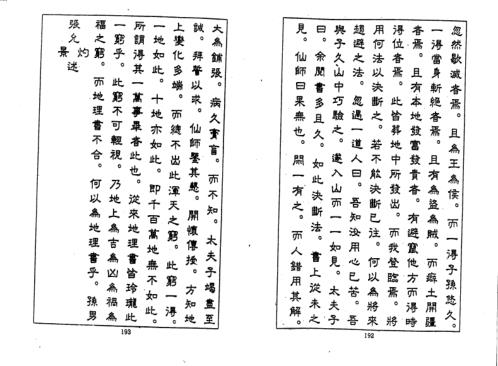 忽然歇滅者焉。且為王為侯。而一得子孫悠久。
一得當身斬絕者焉。且有為盜為賊。而癖土開疆
者焉。且有本地發富發貴者。有避竄他方而得時
得位者焉。此皆葬地中所發出。而我登臨焉。將
用何法以決斷之。若不能決斷已往。何以為將來
趨避之法。忽遇一道人曰。吾知汝用心已苦。吾
與子久山中巧驗之。遂入山而一一如見。太夫子
曰。余閱書多且久。如此決斷法。書上從未之
見。仙師曰果無也。間一有之。而人錯用其解。
192
大為鋪張。病久實盲。而不知。太夫子竭盡至
誠。拜誓以求。仙師鑒其懇。開懷傳授。方知地
上變化多端。而總不出此渾天之竅。此竅一得。
一地如此。十地亦如此。即千百萬地無不如此。
所謂得其一萬事畢者此也。從來地理書皆玲瓏此
一竅乎。此竅不可輕視。乃地上為吉為凶為禍為
福之竅。而地理書不合。何以為地理書乎。孫男
張允灼景述
193